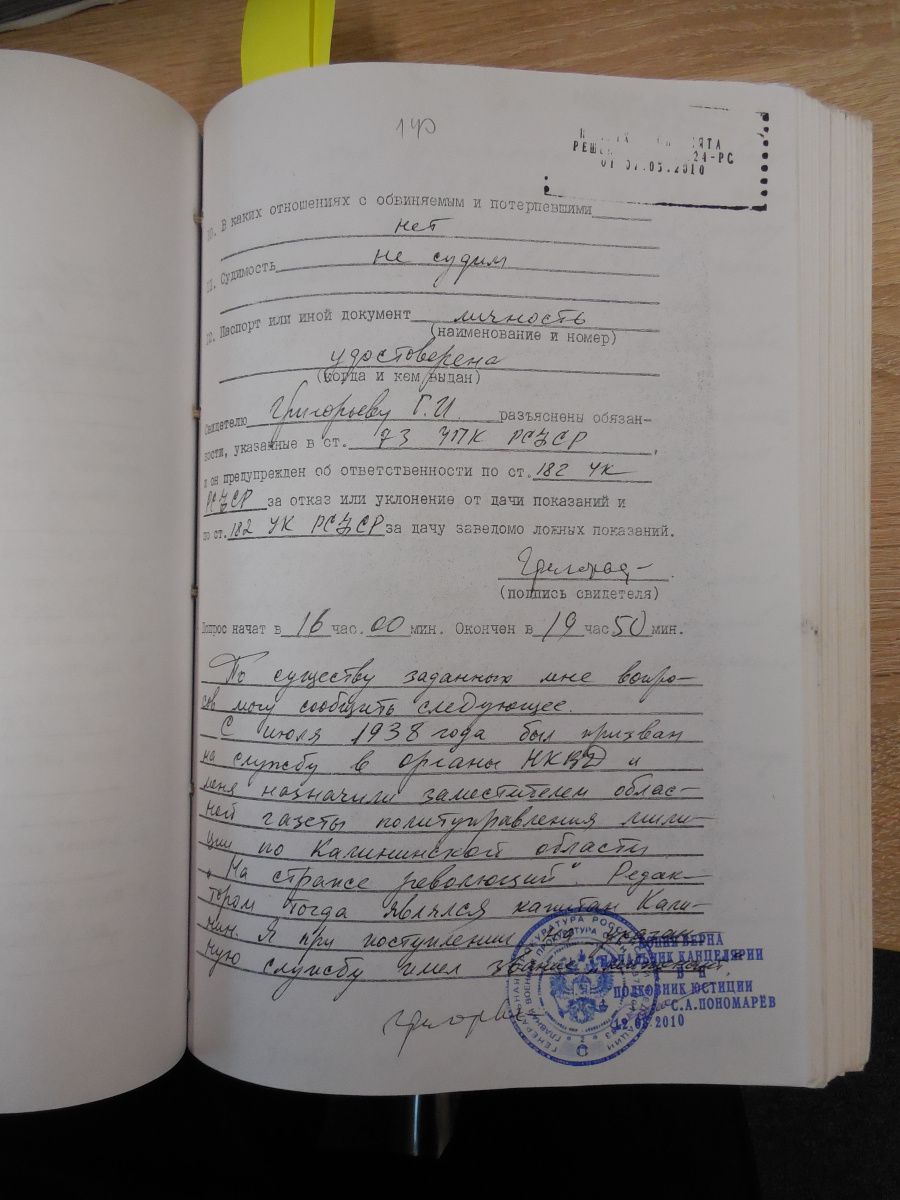 140
РЕШЕ 24-РС
ОТ 07.05.2010
10. В каких отношениях с обвиняемым и потерпевшими
нет
11. Судимость не судим
12. Паспорт или иной документ личность
(наименование и номер)
удостоверена
(когда и кем выдан)
Свидетелю Григорьеву Г.И. разъяснены обязан-
ности, указанные в ст. 73 УПК РСФСР,
и он предупрежден об ответственности по ст. 182 УК
РСФСР за отказ или уклонение от дачи показаний и
по ст. 182 УК РСФСР за дачу заведомо ложных показаний.
(подпись свидетеля)
Допрос начат в 16 час. 00 мин. Окончен в 19 час 50 мин.
По существу заданных мне вопро-
сов могу сообщить следующее.
С июля 1938 года был призван
на службу в органы НКВД и
меня назначили заместителем облас-
ной газеты политуправления мили-
ции по Калининской области
„На страже революций". Редак-
тором тогда являлся капитан Кали-
нин. Я при поступлении на указан-
ную службу имел звание
КОПИЯ ВЕРНА
НАЧАЛЬНИК КАНЦЕЛЯРИИ
ПОЛКОВНИК ЮСТИЦИИ
С.А.ПОНОМАРЁВ
12.08.2010